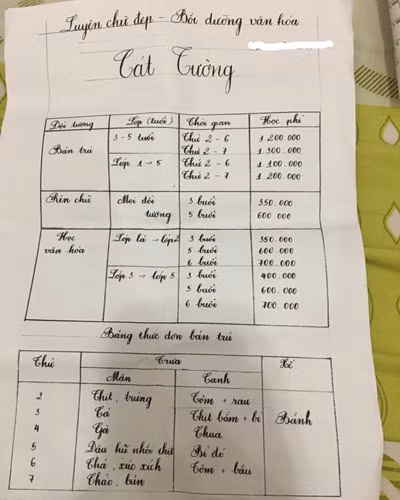 Luyện chữ đẹp - Bồi dưỡng văn hóa
Cát Tường
Đối tượng Lớp (tuổi) Thời gian Học phí
Bán trú 3-5 tuổi Thứ 2-6 1.200.000
Thứ 2-7 1.300.000
Lớp 1-5 Thứ 2-6 1.100.000
Thứ 2-7 1.200.000
Rèn chữ Mọi đối tượng 3 buổi 350.000
5 buổi 600.000
Học văn hóa Lớp lá → lớp 2 3 buổi 350.000
5 buổi 600.000
6 buổi 700.000
Lớp 3 → lớp 5 3 buổi 400.000
5 buổi 600.000
6 buổi 700.000
Bảng thực đơn bán trú
Thứ Trưa Xế
Mặn Canh
2 Thịt, trứng Tôm + rau
3 Cá Thịt bằm + bí
4 Gà Chua
5 Đậu hũ nhồi thịt Bí đỏ
6 Chả, xúc xích Tôm + bầu
7 Cháo, bún
Bánh